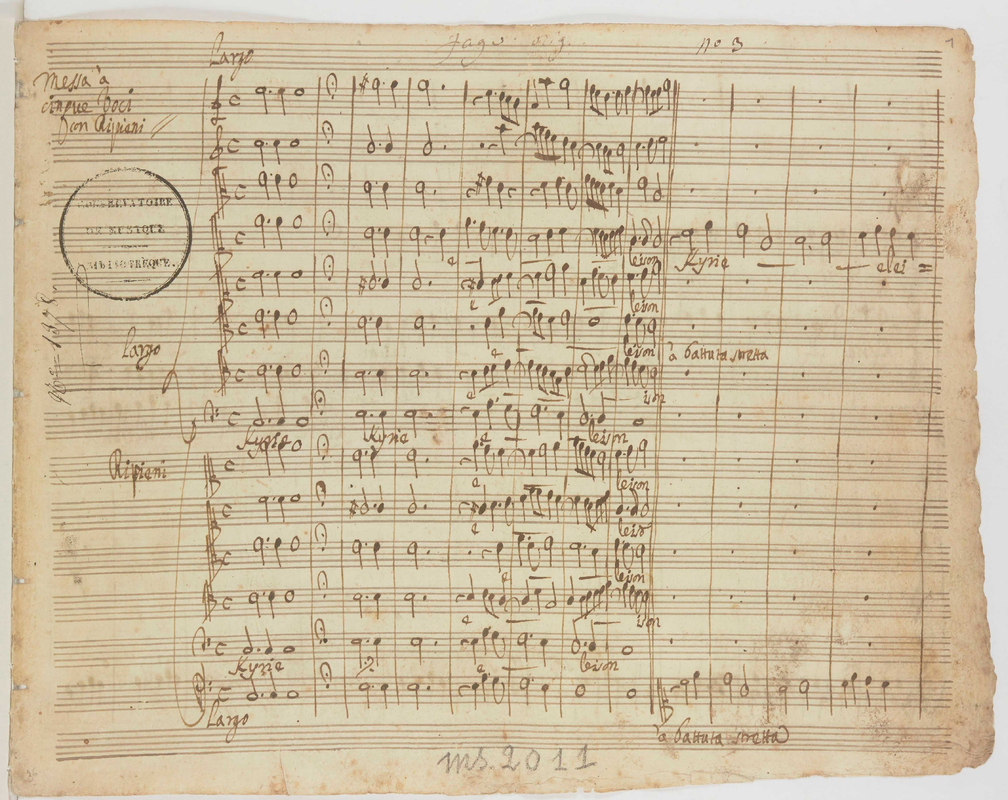 Largo
no 3
1
Messa à
cinque Voci
Con Ripieni
CONSERVATOIRE
DE MUSIQUE
BIBLIOTHÈQUE.
leison
Kyrie
elei =
e
leison
e
Largo
leison
à battuta stretta
e
ison
Kyrie
Kyrie
e
leison
Ripieni
e
leison
leiso
e
leison
e
ison
Kyrie
e
leison
Largo
à battuta stretta
ms. 2011